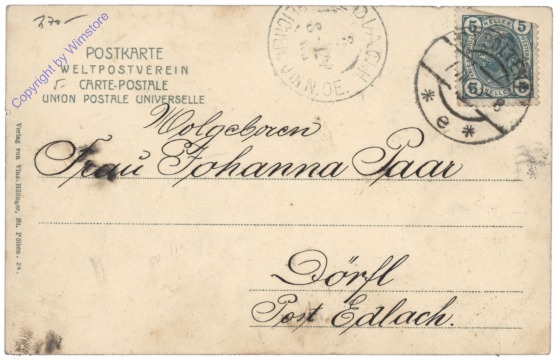 370
POSTKARTE
WELTPOSTVEREIN
CARTE-POSTALE
UNION POSTALE UNIVERSELLE
Copyright by Wimstore
5 HELLER 5
5 HELLER 5
e
Wolgeboren
Frau Johanna Paar
Dörfl
Post Edlach.
Verlag von Vinz. Hödnger, St. Pölten - 24.